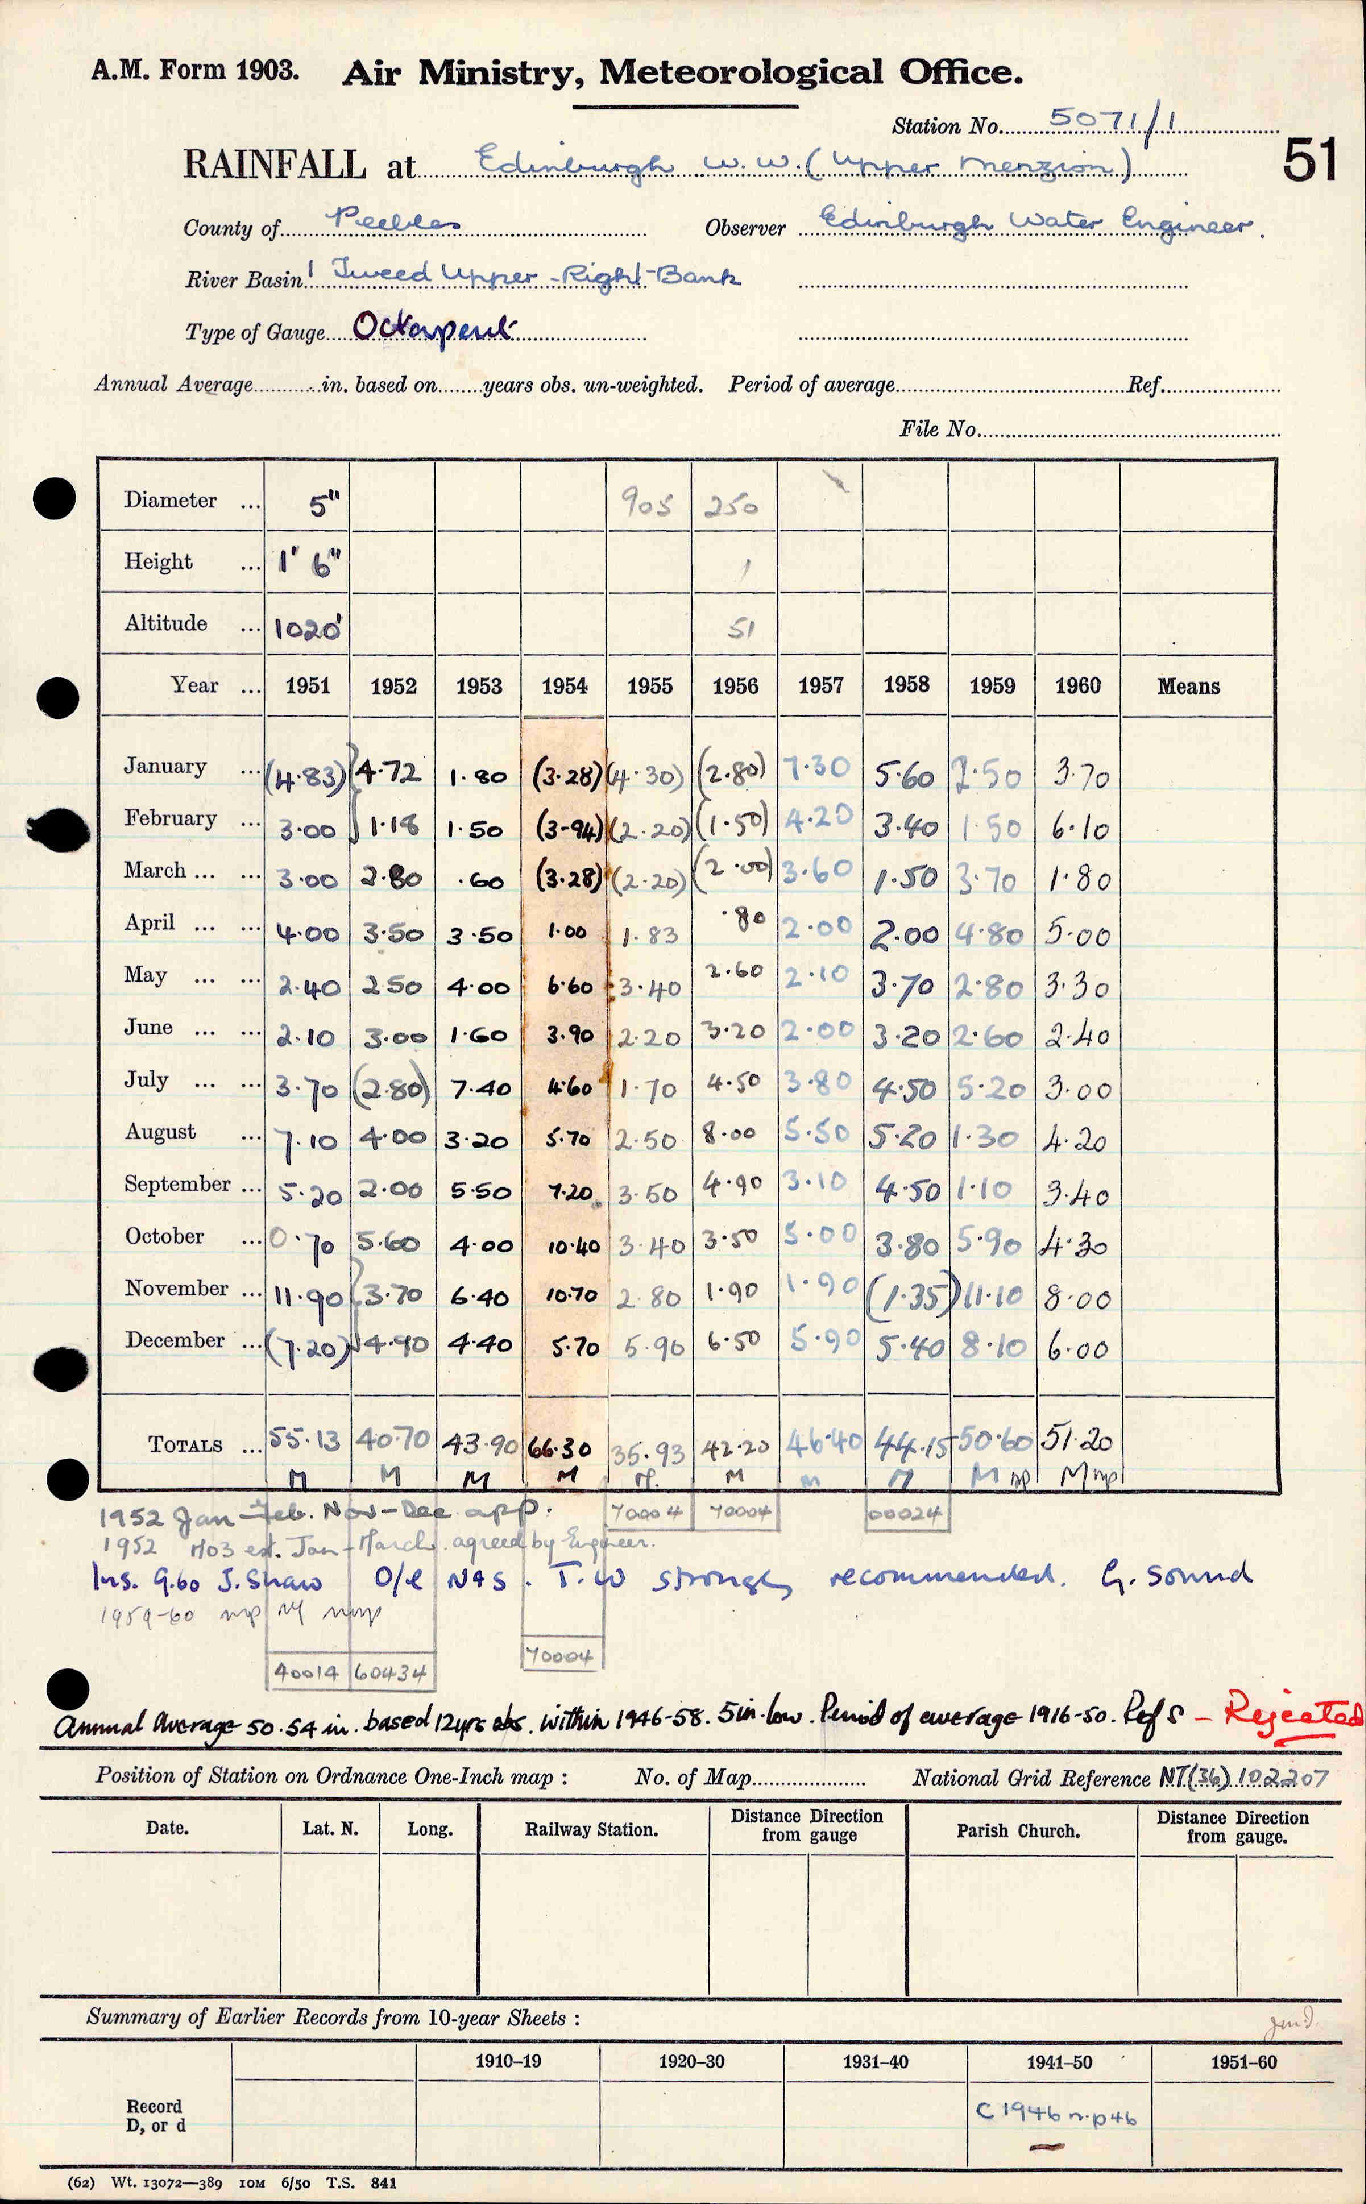 A.M. Form 1903. Air Ministry, Meteorological Office.
Station No. 5071/1
RAINFALL at Edinburgh W.W. (Upper Menzion) 51
County of Peebles Observer Edinburgh Water Engineer.
River Basin Tweed Upper - Right-Bank
Type of Gauge Octapent
Annual Average in. based on years obs. un-weighted. Period of average Ref.
File No.
Diameter ... 5" 905 250
Height ... 1' 6" 1
Altitude ... 1020' 51
Year ... 1951 1952 1953 1954 1955 1956 1957 1958 1959 1960 Means
January ... (4.83) 4.72 1.80 (3.28) (4.30) (2.80) 7.30 5.60 2.50 3.70
February ... 3.00 1.18 1.50 (3.94) (2.20) (1.50) 4.20 3.40 1.50 6.10
March ... ... 3.00 2.80 .60 (3.28) (2.20) (2.00) 3.60 1.50 3.70 1.80
April ... ... 4.00 3.50 3.50 1.00 1.83 .80 2.00 2.00 4.80 5.00
May ... ... 2.40 2.50 4.00 6.60 3.40 2.60 2.10 3.70 2.80 3.30
June ... ... 2.10 3.00 1.60 3.90 2.20 3.20 2.00 3.20 2.60 2.40
July ... ... 3.70 (2.80) 7.40 4.60 1.70 4.50 3.80 4.50 5.20 3.00
August ... 7.10 4.00 3.20 5.70 2.50 8.00 5.50 5.20 1.30 4.20
September ... 5.20 2.00 5.50 7.20 3.50 4.90 3.10 4.50 1.10 3.40
October ... 0.70 5.60 4.00 10.40 3.40 3.50 5.00 3.80 5.90 4.30
November ... 11.90 3.70 6.40 10.70 2.80 1.90 1.90 (1.35) 11.10 8.00
December ... (7.20) 4.90 4.40 5.70 5.90 6.50 5.90 5.40 8.10 6.00
TOTALS ... 55.13 40.70 43.90 66.30 35.93 42.20 46.40 44.15 50.60 51.20
M M M M M. M m M M mp M mp
1952 Jan-Feb. Nov-Dec app. 70004 70004 00024
1952 M03 est. Jan-March agreed by Engineer.
Ins. 9.60 J. Shaw O/l N & S. T.W strongly recommended. G. Sound
1959-60 mp M mmp
70004
40014 60434
Annual Average 50.54 in. based 12 yrs obs. within 1946-58. 5 in. low. Period of average 1916-50. Ref S - Rejected
Position of Station on Ordnance One-Inch map : No. of Map National Grid Reference NT(36) 102207
Date. Lat. N. Long. Railway Station. Distance from gauge Direction Parish Church. Distance from gauge. Direction
Summary of Earlier Records from 10-year Sheets :
1910–19 1920–30 1931–40 1941–50 1951–60
Record D, or d C 1946 n.p 46
(62) Wt. 13072—389 10M 6/50 T.S. 841